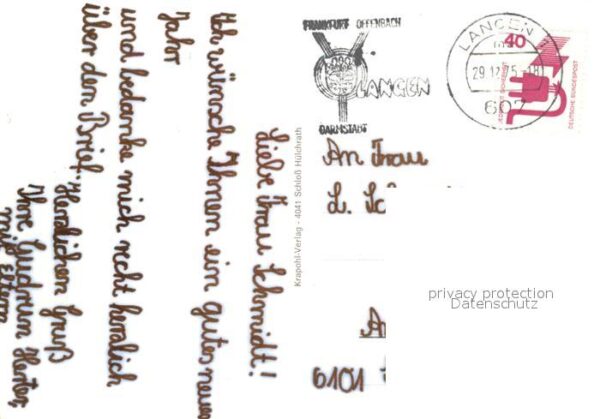 Liebe Frau Schmidt!
Ich wünsche Ihnen ein gutes neues
Jahr
und bedanke mich recht herzlich
über den Brief.
Herzlichen Gruß
Ihre Gudrun Herter,
mit Eltern
Krapohl-Verlag - 4041 Schloß Hülchrath
FRANKFURT OFFENBACH
LANGEN
DARMSTADT
LANGEN
29.12.75
607
40
DEUTSCHE BUNDESPOST
An Frau
L. Sc
A
6101
privacy protection
Datenschutz